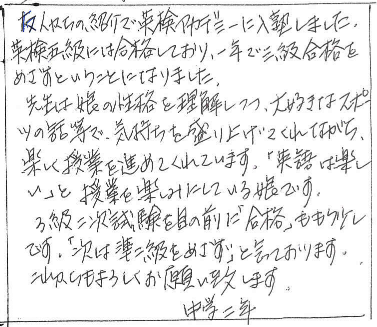 友人からの紹介で英検アカデミーに入塾しました。
英検五級には合格しており、一年で三級合格を
めざすということになりました。
先生は娘の性格を理解しつつ、大好きなスポー
ツの話等で、気持ちを盛り上げてくれながら、
楽しく授業を進めてくれています。「英語は楽し
い」と授業を楽しみにしている娘です。
3級二次試験を目の前に「合格」ももう少し
です。「次は準二級をめざす」と言っております。
これからもよろしくお願い致します。
中学二年